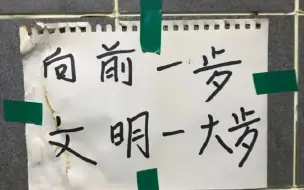 向前一步
文明一大步